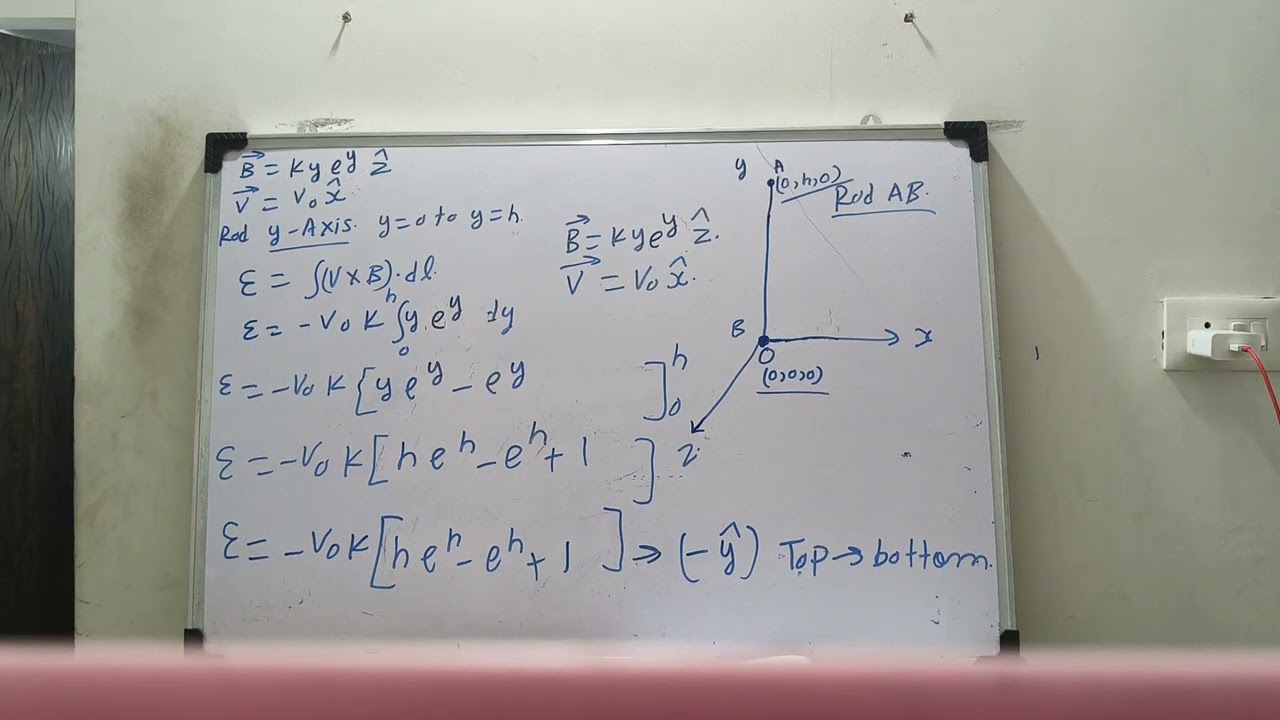 B⃗ = K y e^y ẑ
V⃗ = V₀ x̂
Rod y-Axis. y=0 to y=h.
ε = ∫(V×B)·dl.
ε = -V₀ K ∫₀^h y.e^y dy
ε = -V₀ K [y e^y - e^y]₀^h
ε = -V₀ K [h e^h - e^h + 1]
ε = -V₀ K [h e^h - e^h + 1] → (-ŷ) Top → bottom.
B⃗ = K y e^y ẑ.
V⃗ = V₀ x̂.
y A
(0,h,0)
Rod AB.
B
O
(0,0,0)
x
z